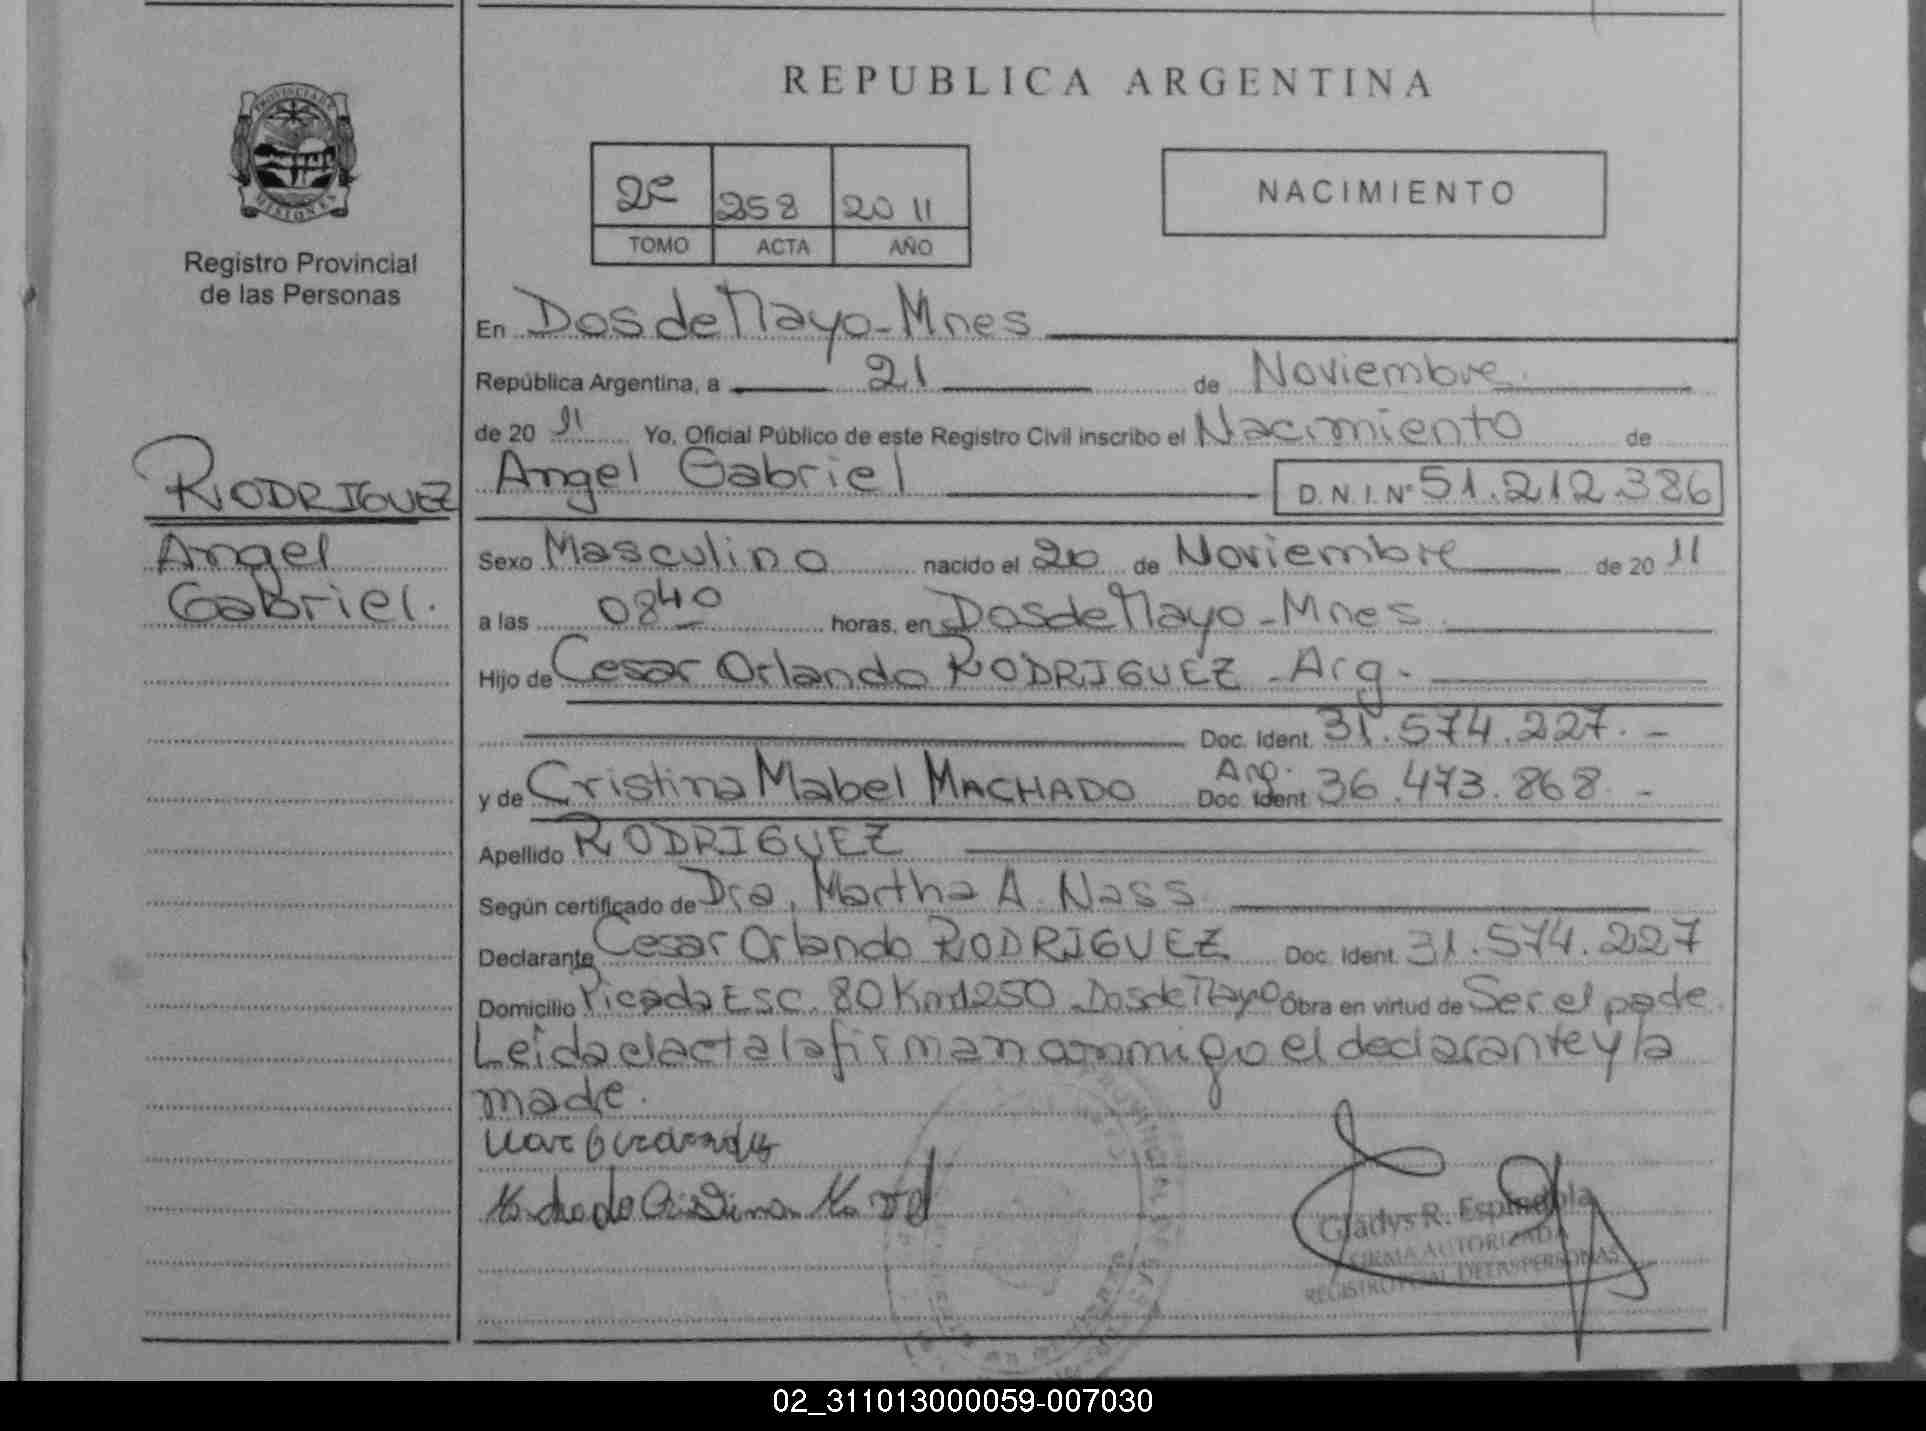 REPUBLICA ARGENTINA
PROVINCIA DE
MISIONES
Registro Provincial
de las Personas
258 20 11
TOMO ACTA AÑO
NACIMIENTO
En Dos de Mayo - Mnes
República Argentina, a 21 de Noviembre.
de 20 11 Yo, Oficial Público de este Registro Civil inscribo el Nacimiento de
RODRIGUEZ
Angel Gabriel D.N.I. Nº 51.212.386
Angel
Gabriel.
Sexo Masculino nacido el 20 de Noviembre de 20 11
a las 0840 horas, en Dos de Mayo - Mnes.
Hijo de Cesar Orlando RODRIGUEZ - Arg.
Doc. Ident. 31.574.227. -
y de Cristina Mabel MACHADO Arg. Doc. Ident. 36.473.868. -
Apellido RODRIGUEZ
Según certificado de Dra. Martha A. Nass
Declarante Cesar Orlando RODRIGUEZ Doc. Ident. 31.574.227
Domicilio Picada Esc. 80 Km 1250 - Dos de Mayo Obra en virtud de Ser el padre.
Leida el acta la firman conmigo el declarante y la
madre.
Machado Cristina
Gladys R. Espindola
FIRMA AUTORIZADA
REGISTRO PCIAL. DE LAS PERSONAS
02_311013000059-007030